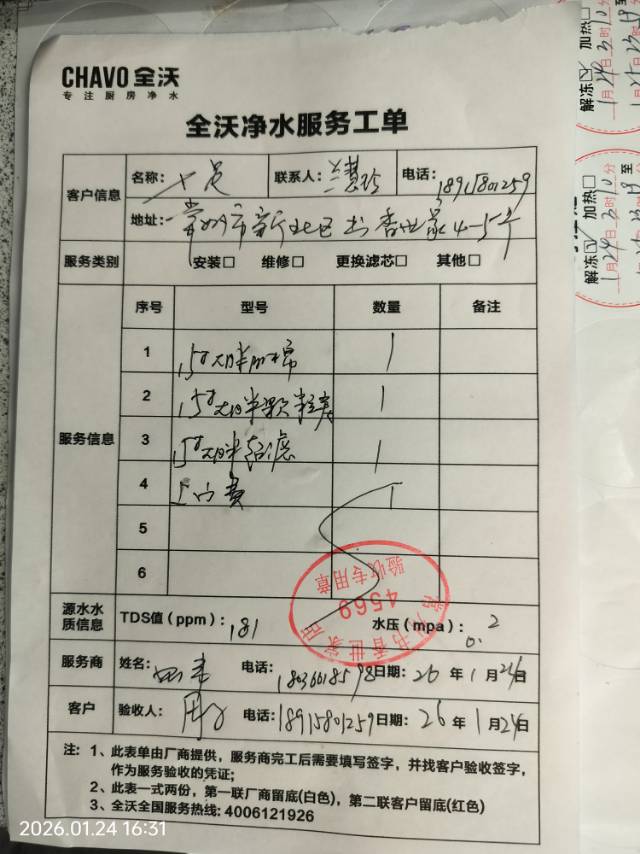 CHAVO 全沃
专注厨房净水
全沃净水服务工单
客户信息
名称:
联系人:
电话: 18915801259
地址: 常州市新北区书香世家4-5号
服务类别 安装□ 维修□ 更换滤芯□ 其他□
服务信息
序号 型号 数量 备注
1 15寸大胖pp棉 1
2 15寸大胖颗粒炭 1
3 15寸大胖超滤 1
4 上门费 1
5
6
验收专用章
4569
书香世家店
源水水质信息 TDS值(ppm): 181 水压(mpa): 0.2
服务商 姓名: 电话: 18036618598 日期: 26年1月24日
客户 验收人: 电话: 18915801259 日期: 26年1月24日
注: 1、此表单由厂商提供,服务商完工后需要填写签字,并找客户验收签字,
作为服务验收的凭证;
2、此表一式两份,第一联厂商留底(白色),第二联客户留底(红色)
3、全沃全国服务热线: 4006121926
2026.01.24 16:31
解冻☑ 加热□
1月24日3时10分
至
解冻☑ 加热□
1月24日3时10分
至